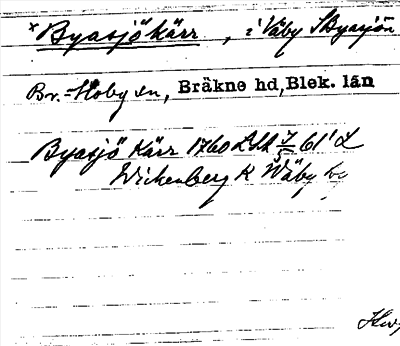 * Byasjökärr, i Väby & Byasjön
Br.-Hoby sn, Bräkne hd, Blek. län
Byasjö Kärr 1760 LSA 61' L
Wickenberg K Wäby by